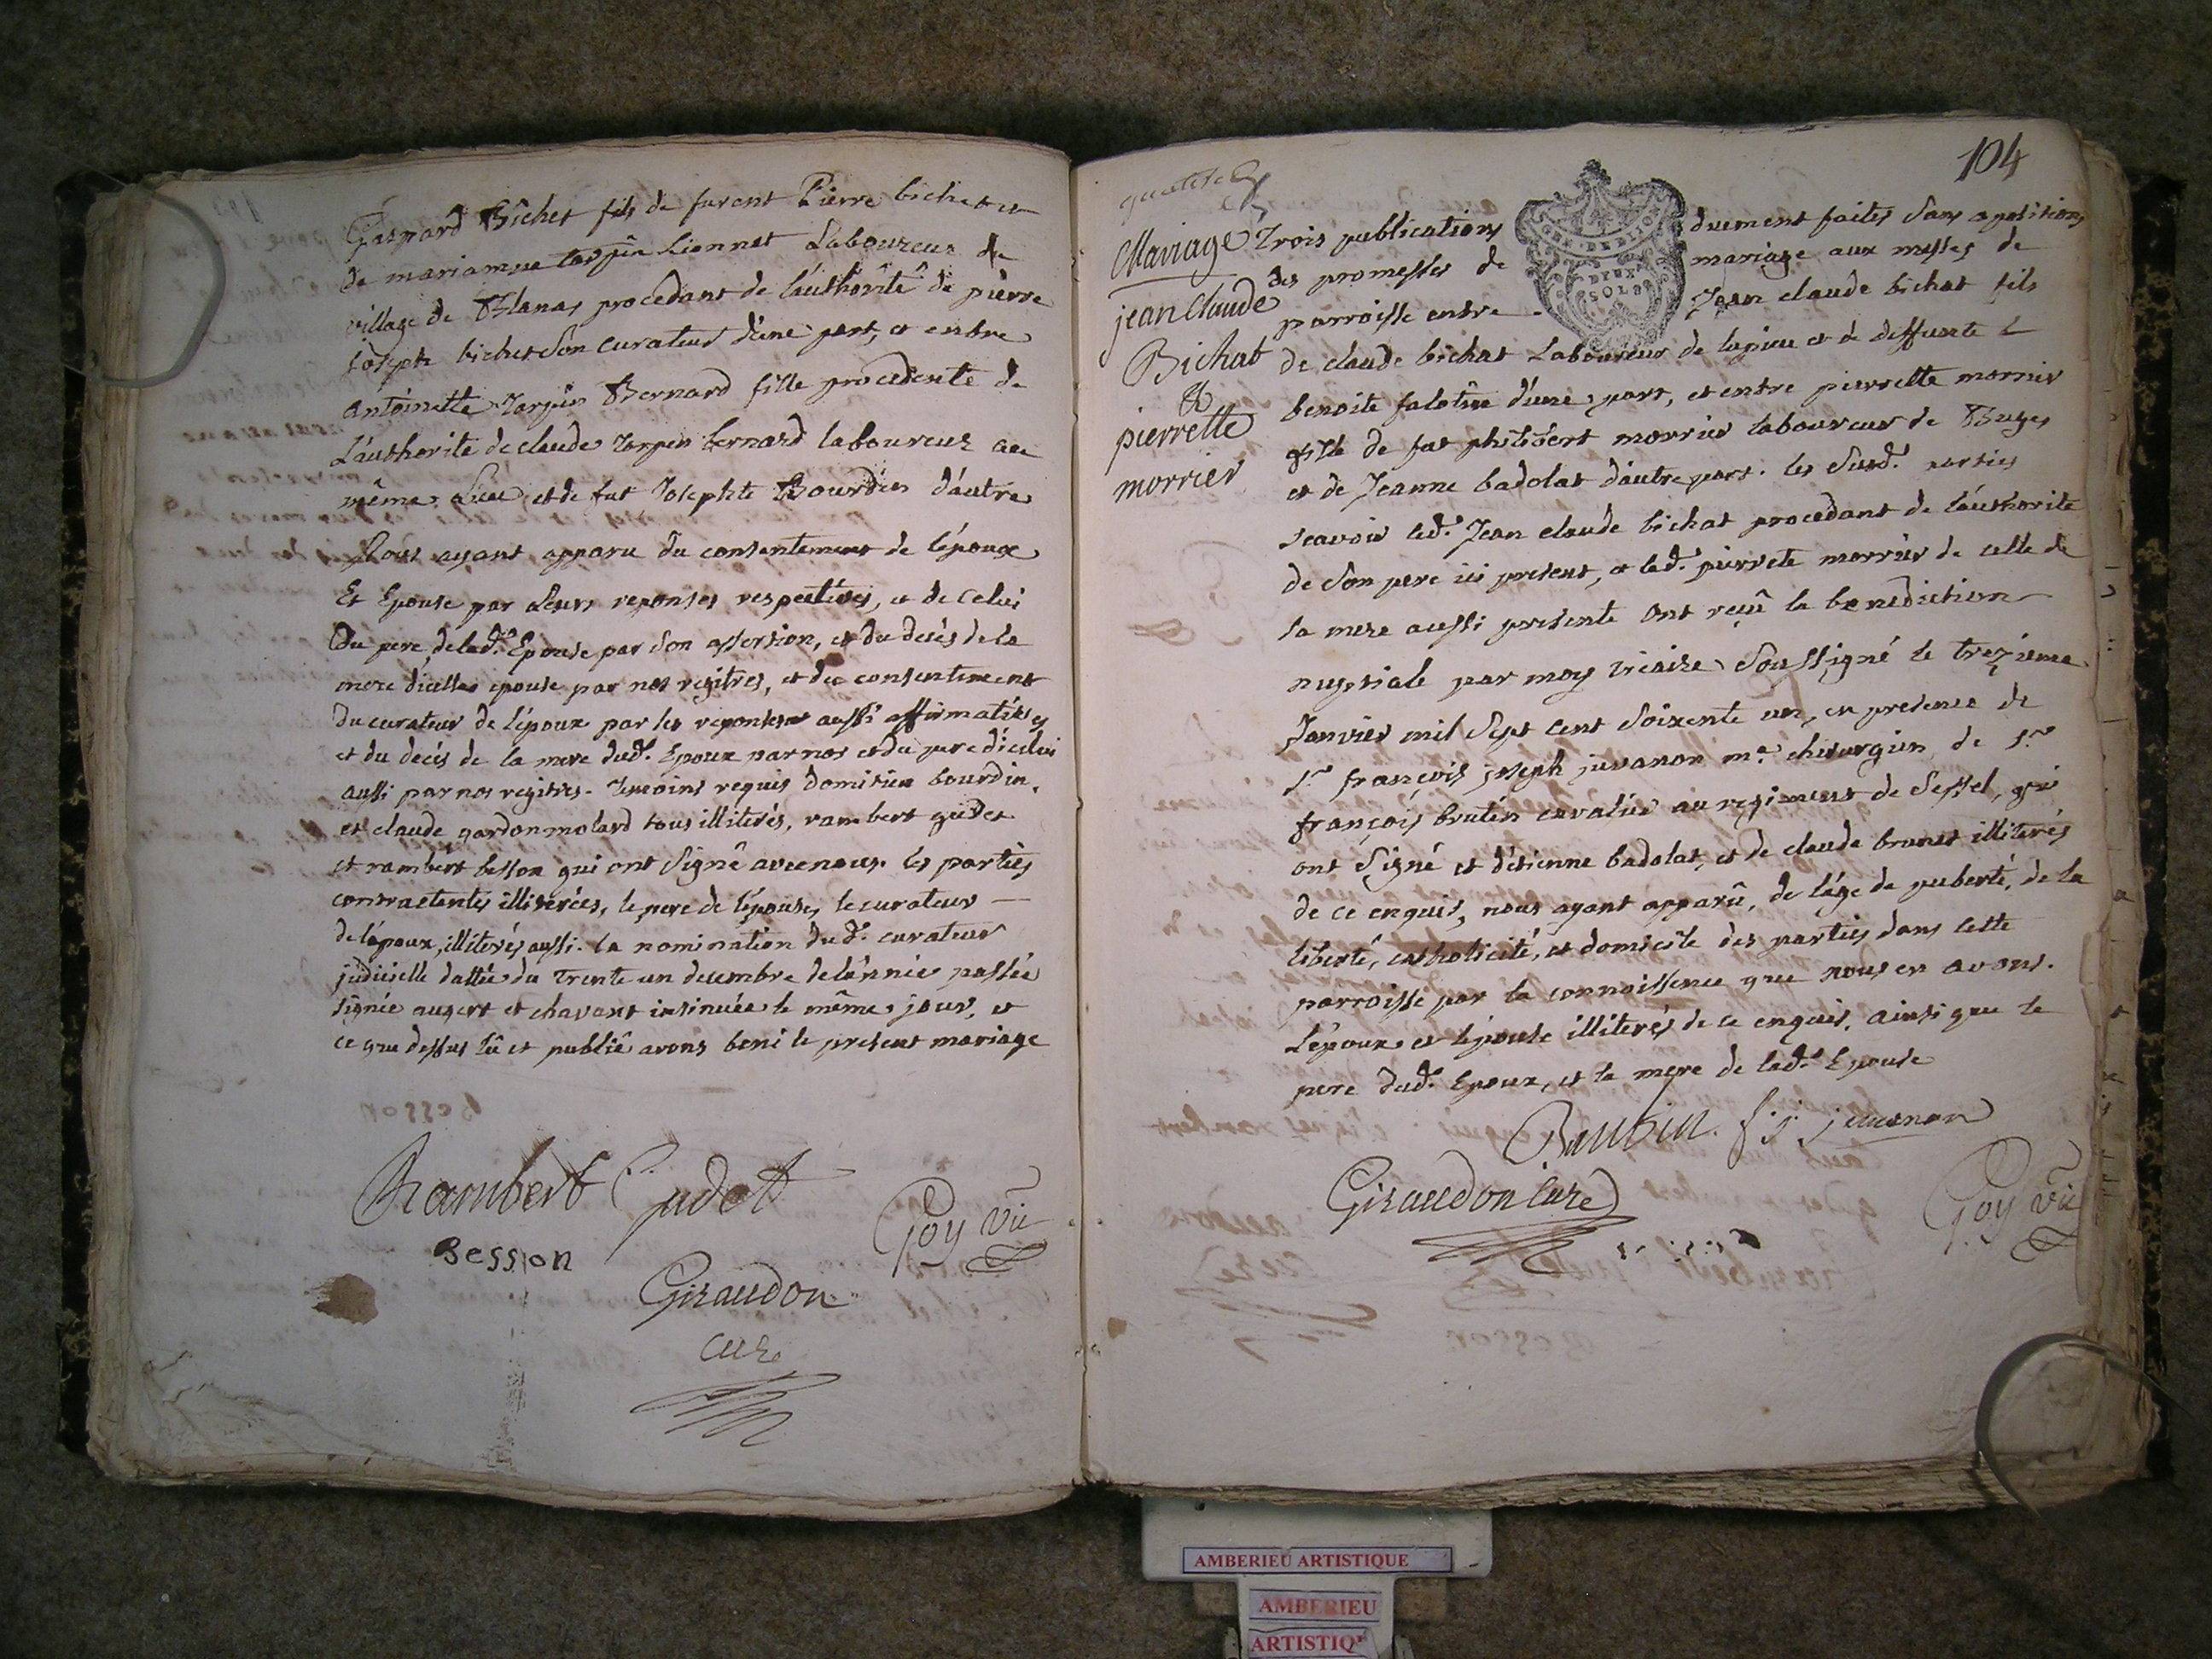 Gaspard Bichet fils de furent Pierre bichet et
de mariamne tarpin Lionnet Laboureur du
village de Blanas procedant de l'authorité de pierre
Joseph bichet son curateur d'une part, et entre
antoinette Tarpin Bernard fille procedente de
L'authorite de claude Tarpin bernard laboureur au
même Lieu et de fut Josephte Bourdin d'autre
Nous ayant apparu du consentement de l'époux
Et Epouse par Leurs reponses respectives, et de Celui
Du pere de lad.e Epouse par son assertion, et du decès de la
mere d'icelle epouse par nos regitres, et du consentement
du curateur de l'époux par les reponses aussi affirmatives
et du decés de la mere dud.t Epoux par nos et du pere d'icelui
aussi par nos regitres. Temoins requis domitien bourdin,
et claude gardon molard tous illiterés, rambert gudet
et rambert besson qui ont signé avec nous. les parties
contractentes illiterées, le pere de l'épouse, le curateur —
de l'époux, illiterés aussi. la nomination dud.t curateur
judicielle dattée du trente un decembre de l'année passée
signée augert et chavant insinuée le même jour, et
ce que dessus lû et publié avons beni le present mariage
Rambert Gudet
Besson
Goy vic
Giraudon
curé
104
Mariage
jean Claude
Bichat
&
pierrette
morrier
Trois publications duement faites sans apositions
des promesses de mariage aux messes de
parroisse entre Jean claude bichat fils
de claude bichat Laboureur de et de deffunte
benoite falotin d'une part, et entre pierrette morrier
fille de fut philibert morrier laboureur de Buges
et de Jeanne badolat d'autre part. les susd.t parties
scavoir led.t Jean claude bichat procedant de l'authorite
de son pere ici present, et lad.e pierrete morrier de celle de
sa mere aussi presente ont reçû la benediction
nuptiale par moy vicaire soussigné le trezieme
Janvier mil sept cent soixente un, en presence de
s.r françois joseph juvanon m.e chirurgien, de s.r
françois brutin cavalier au regiment de seyssel, qui
ont signé et d'étienne badolat, et de claude brunet illiterés
de ce enquis, nous ayant apparû, de l'áge de puberté, de la
liberté, catholicité, et domicile des parties dans cette
parroisse par la connoissence que nous en avons.
L'époux et l'épouse illiterés de ce enquis, ainsi que le
pere dud.t Epoux, et la mere de lad.e Epouse
f. j. juvanon
Giraudon Curé
Goy vic
AMBERIEU ARTISTIQUE
AMBERIEU
ARTISTIQ